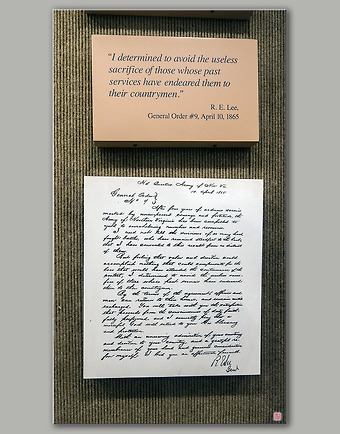 “I determined to avoid the useless
sacrifice of those whose past
services have endeared them to
their countrymen.”
R. E. Lee,
General Order #9, April 10, 1865
Hd Quarters Army of Nor Va
10 April 1865
General Orders
No 9
After four years of arduous service
marked by unsurpassed courage and fortitude, the
Army of Northern Virginia has been compelled to
yield to overwhelming numbers and resources
I need not tell the survivors of so many hard
fought battles, who have remained steadfast to the last,
that I have consented to this result from no distrust
of them
But feeling that valor and devotion could
accomplish nothing that could compensate for the
loss that would have attended the continuance of the
contest, I determined to avoid the useless sacri
fice of those whose past services have endeared
them to their countrymen
By the terms of the agreement officers and
men can return to their homes, and remain until
exchanged. You will take with you the satisfaction
that proceeds from the consciousness of duty faith
fully performed, and I earnestly pray that a
merciful God will extend to you His blessing
and protection
With an increasing admiration of your constancy
and devotion to your country, and a grateful re
membrance of your kind and generous consideration
for myself, I bid you an affectionate farewell.
R E Lee
Genl